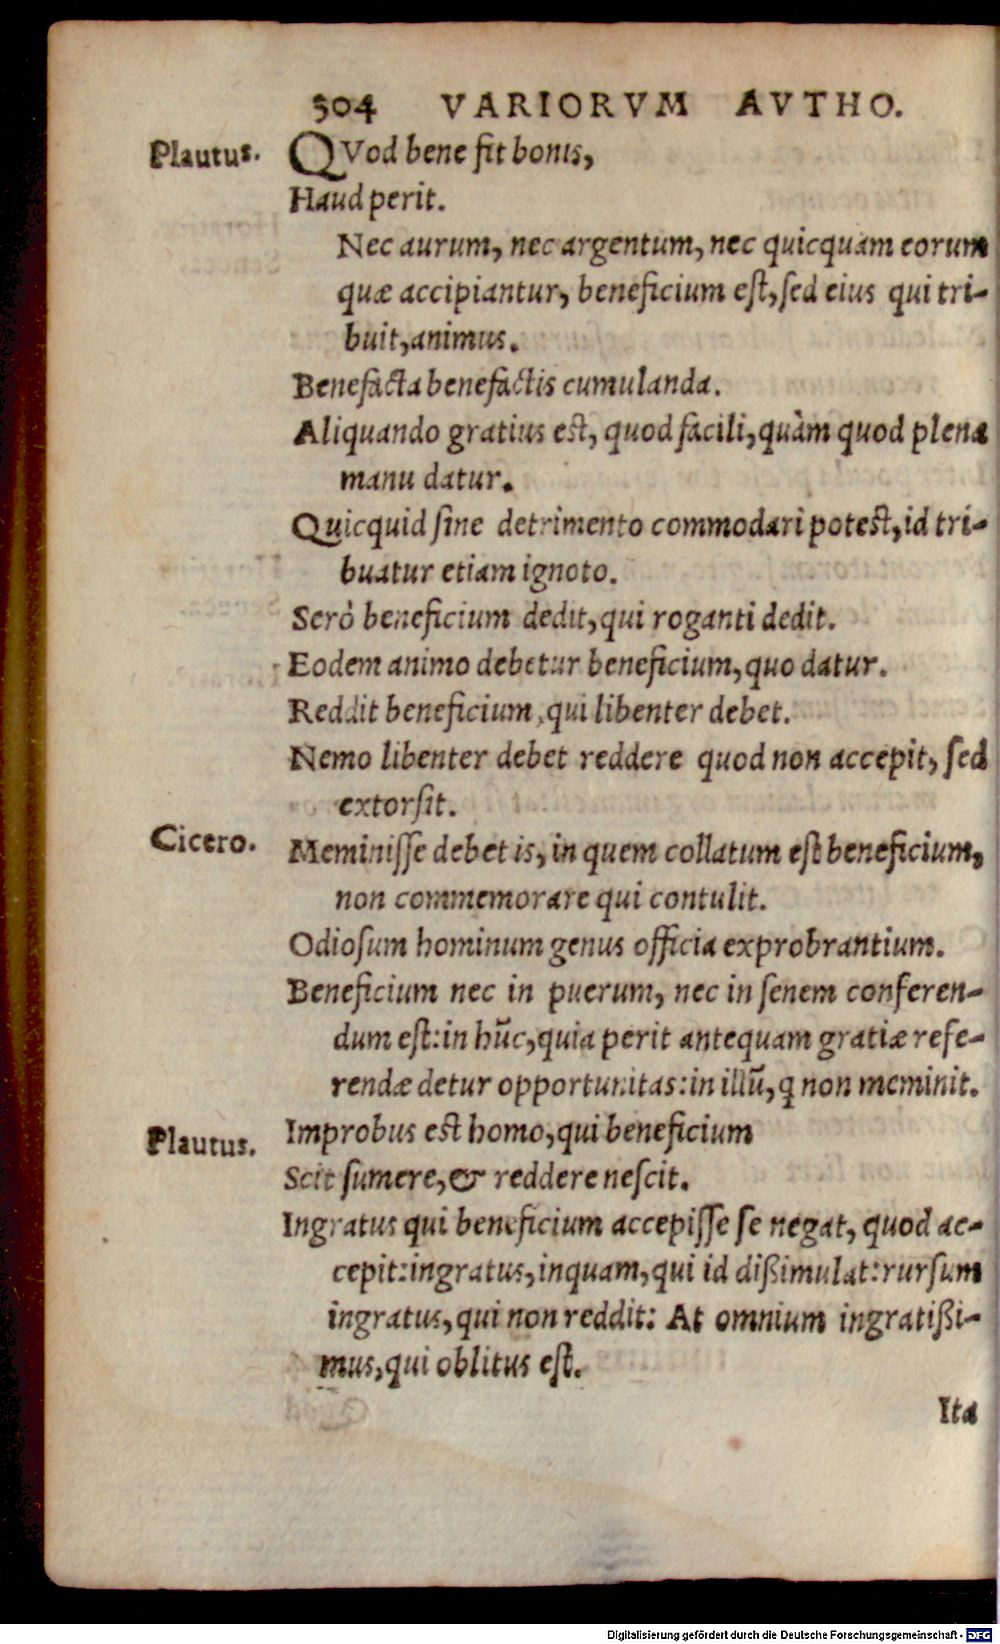 504 VARIORVM AVTHO.
Plautus. QVod bene fit bonis,
Haud perit.
Nec aurum, nec argentum, nec quicquam eorum
quæ accipiantur, beneficium est, sed eius qui tri-
buit, animus.
Benefacta benefactis cumulanda.
Aliquando gratius est, quod facili, quàm quod plena
manu datur.
Quicquid sine detrimento commodari potest, id tri-
buatur etiam ignoto.
Serò beneficium dedit, qui roganti dedit.
Eodem animo debetur beneficium, quo datur.
Reddit beneficium, qui libenter debet.
Nemo libenter debet reddere quod non accepit, sed
extorsit.
Cicero. Meminisse debet is, in quem collatum est beneficium,
non commemorare qui contulit.
Odiosum hominum genus officia exprobrantium.
Beneficium nec in puerum, nec in senem conferen-
dum est: in hūc, quia perit antequam gratiæ refe-
rendæ detur opportunitas: in illū, ꝗ non meminit.
Plautus. Improbus est homo, qui beneficium
Scit sumere, & reddere nescit.
Ingratus qui beneficium accepisse se negat, quod ac-
cepit: ingratus, inquam, qui id dißimulat: rursum
ingratus, qui non reddit: At omnium ingratißi-
mus, qui oblitus est.
Ita
Digitalisierung gefördert durch die Deutsche Forschungsgemeinschaft - DFG